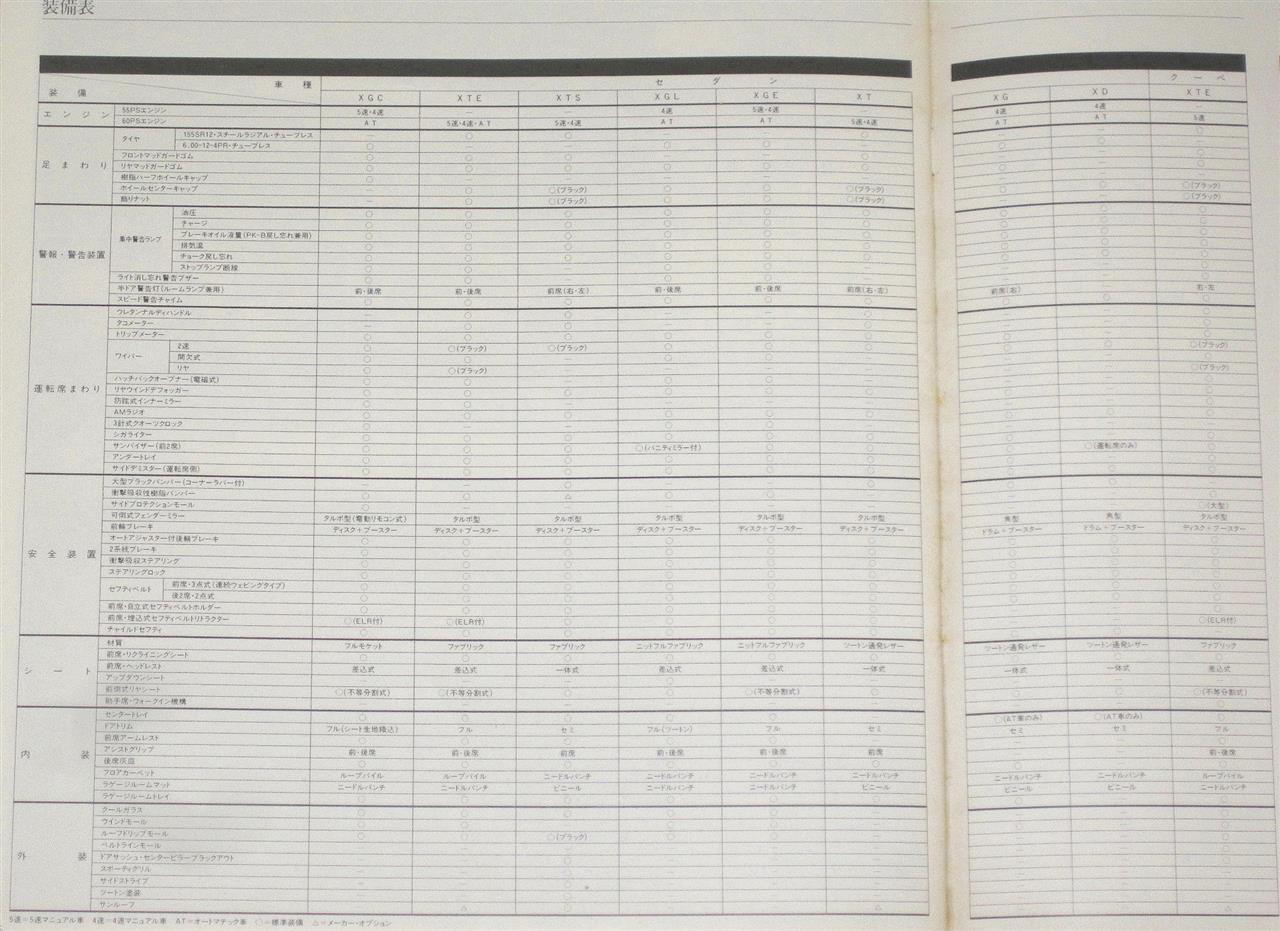 装備表
装備 車種 セダン クーペ
XGC XTE XTS XGL XGE XT XG XD XTE
エンジン 55PSエンジン 5速・4速 — — 4速 5速・4速 — 4速 4速 —
60PSエンジン AT 5速・4速・AT 5速・4速 AT AT 5速・4速 AT AT 5速
足まわり
タイヤ 155SR12・スチールラジアル・チューブレス
6.00-12-4PR・チューブレス
フロントマッドガードゴム
リヤマッドガードゴム
樹脂ハーフホイールキャップ
ホイールセンターキャップ ○(ブラック) ○(ブラック) ○(ブラック)
飾りナット ○(ブラック) ○(ブラック) ○(ブラック)
警報・警告装置
集中警告ランプ 油圧
チャージ
ブレーキオイル液量(PK-B戻し忘れ兼用)
排気温
チョーク戻し忘れ
ストップランプ断線
ライト消し忘れ警告ブザー
半ドア警告灯(ルームランプ兼用) 前・後席 前・後席 前席(右・左) 前・後席 前・後席 前席(右・左) 前席(右) 右・左
スピード警告チャイム
運転席まわり
ウレタンナルディハンドル
タコメーター
トリップメーター
ワイパー 2速 ○(ブラック) ○(ブラック) ○(ブラック)
間欠式
リヤ ○(ブラック) ○(ブラック)
ハッチバックオープナー(電磁式)
リヤウインドデフォッガー
防眩式インナーミラー
AMラジオ
3針式クオーツクロック
シガライター
サンバイザー(前2席) ○(バニティミラー付) ○(運転席のみ)
アンダートレイ
サイドデミスター(運転席側)
安全装置
大型ブラックバンパー(コーナーラバー付)
衝撃吸収性樹脂バンパー
サイドプロテクションモール ○(大型)
可倒式フェンダーミラー タルボ型(電動リモコン式) タルボ型 タルボ型 タルボ型 タルボ型 タルボ型 角型 角型 タルボ型
前輪ブレーキ ディスク+ブースター ディスク+ブースター ディスク+ブースター ディスク+ブースター ディスク+ブースター ディスク+ブースター ドラム+ブースター ドラム+ブースター ディスク+ブースター
オートアジャスター付後輪ブレーキ
2系統ブレーキ
衝撃吸収ステアリング
ステアリングロック
セフティベルト 前席・3点式(連続ウェビングタイプ)
後2席・2点式
前席・自立式セフティベルトホルダー
前席・埋込式セフティベルトリトラクター ○(ELR付) ○(ELR付) ○(ELR付)
チャイルドセフティ
シート
材質 フルモケット ファブリック ファブリック ニットフルファブリック ニットフルファブリック ツートン通発レザー ツートン通発レザー ツートン通発レザー ファブリック
前席・リクライニングシート
前席・ヘッドレスト 差込式 差込式 一体式 差込式 差込式 一体式 一体式 一体式 差込式
アップダウンシート
前倒式リヤシート ○(不等分割式) ○(不等分割式) ○(不等分割式) ○(不等分割式)
助手席・ウォークイン機構
内装
センタートレイ ○(AT車のみ) ○(AT車のみ)
ドアトリム フル(シート生地積込) フル セミ フル(ツートン) フル セミ セミ セミ フル
前席アームレスト
アシストグリップ 前・後席 前・後席 前席 前・後席 前・後席 前席 前・後席
後席灰皿
フロアカーペット ループパイル ループパイル ニードルパンチ ニードルパンチ ニードルパンチ ニードルパンチ ニードルパンチ ニードルパンチ ループパイル
ラゲージルームマット ニードルパンチ ニードルパンチ ビニール ニードルパンチ ニードルパンチ ビニール ビニール ビニール ニードルパンチ
ラゲージルームトレイ
外装
クールガラス
ウインドモール
ルーフドリップモール ○(ブラック)
ベルトラインモール
ドアサッシュ・センターピラーブラックアウト
スポーティグリル
サイドストライプ
ツートン塗装
サンルーフ
5速=5速マニュアル車 4速=4速マニュアル車 AT=オートマチック車 ○=標準装備 △=メーカー・オプション